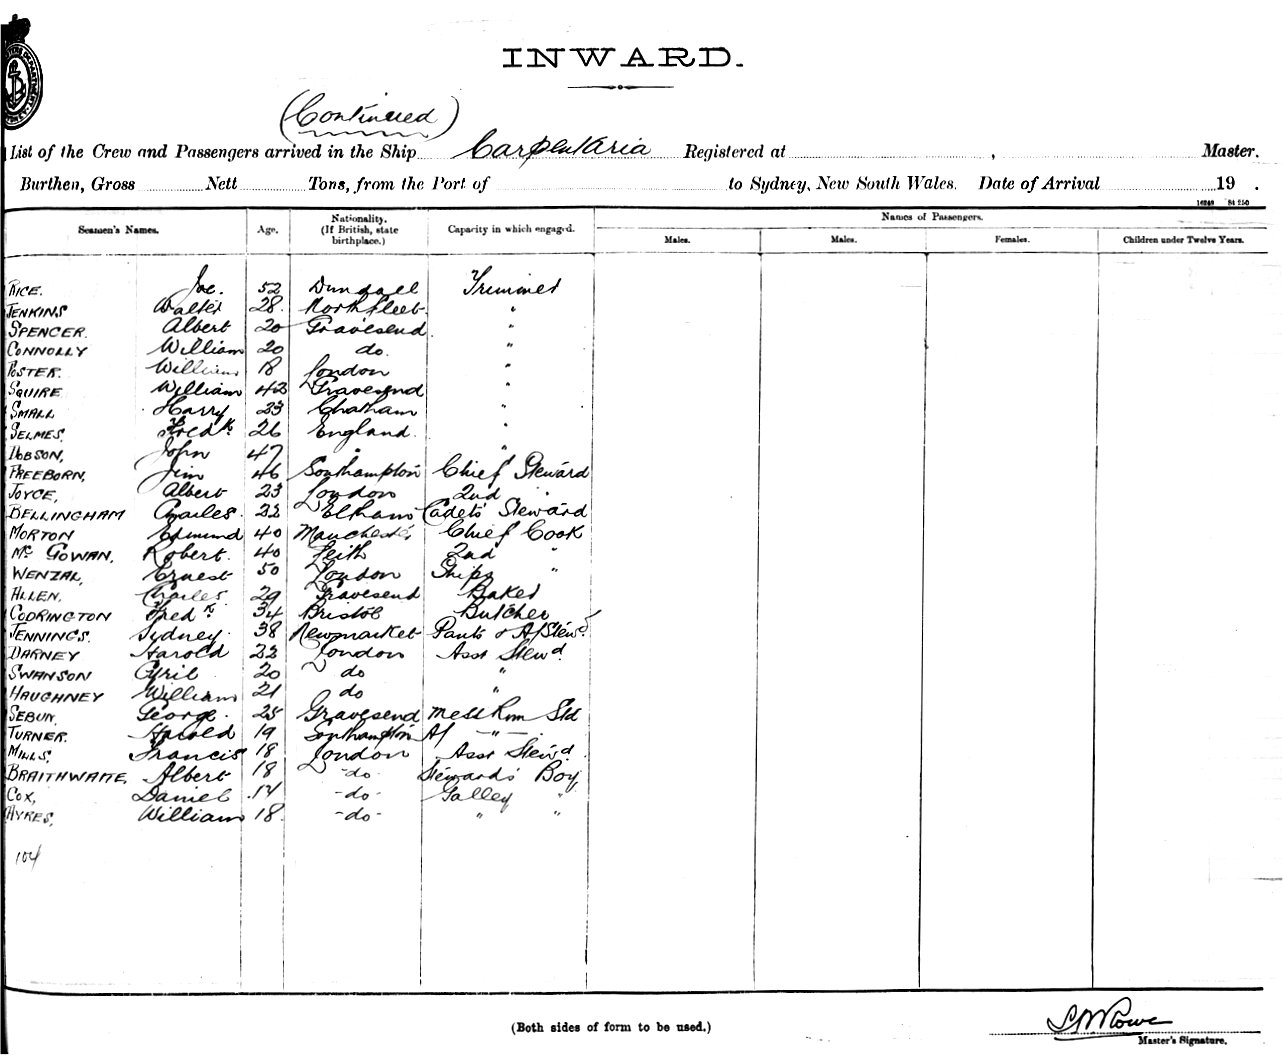 INWARD.
(Continued)
List of the Crew and Passengers arrived in the Ship Carpentaria Registered at , Master.
Burthen, Gross Nett Tons, from the Port of to Sydney, New South Wales. Date of Arrival 19 .
Seamen's Names. Age. Nationality. (If British, state birthplace.) Capacity in which engaged. Names of Passengers.
Males. Males. Females. Children under Twelve Years.
RICE. Joe. 52 Trimmer
JENKINS Walter 28. Northfleet "
SPENCER. Albert 20 Gravesend "
CONNOLLY William 20 do. "
William 18 London "
SQUIRE William 42 Gravesend "
SMALL Harry 23 Chatham "
SELMES, Fredk 26 England. "
DOBSON, John 47 " "
FREEBORN, Jim 46 Southampton Chief Steward
JOYCE, Albert 23 London 2nd "
BELLINGHAM Charles. 22 Eltham Cadets Steward
MORTON Edmund 40 Manchester Chief Cook
Mc GOWAN, Robert. 40 Leith 2nd "
WENZAL, Ernest 50 London Ships "
ALLEN, Charles 29 Gravesend Baker
CODRINGTON Fredk 34 Bristol Butcher
JENNINGS. Sydney. 38 Newmarket Pants & A/Stewd
DARNEY Harold 22 London Asst Stewd
SWANSON Cyril 20 do "
HAUGHNEY William 21 do "
SEBUN, George. 25 Gravesend Mess Rm Std
TURNER. Harold 19 Southampton A/ -"-
MILLS, Francis 18 London Asst Stewd.
BRAITHWAITE, Albert 18 -do- Steward's Boy
COX, Daniel 17 -do- Galley "
AYRES, William 18. -do- " "
104
(Both sides of form to be used.)
Master's Signature.